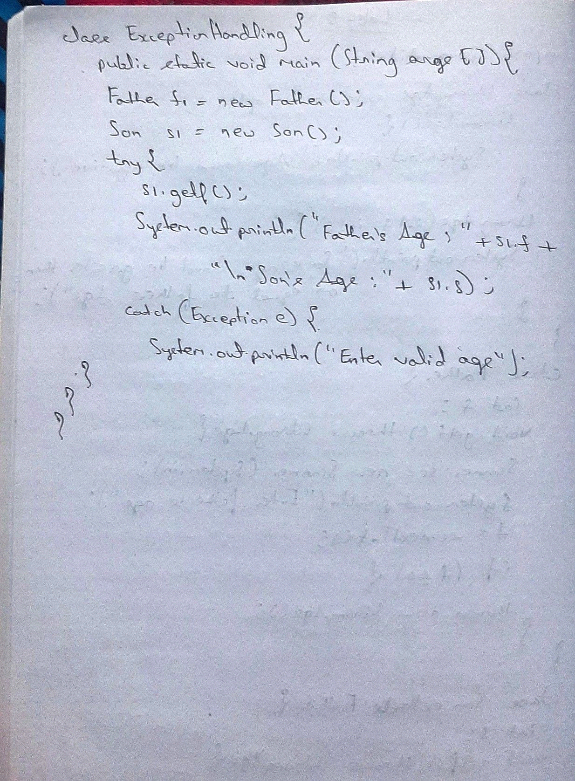 class ExceptionHandling {
public static void main (String args []) {
Father f1 = new Father ();
Son s1 = new Son();
try {
s1.getf();
System.out.println("Father's Age : " + s1.f +
"\n" Son's Age : " + s1.s);
catch (Exception e) {
System.out.println("Enter valid age");
}
}
}